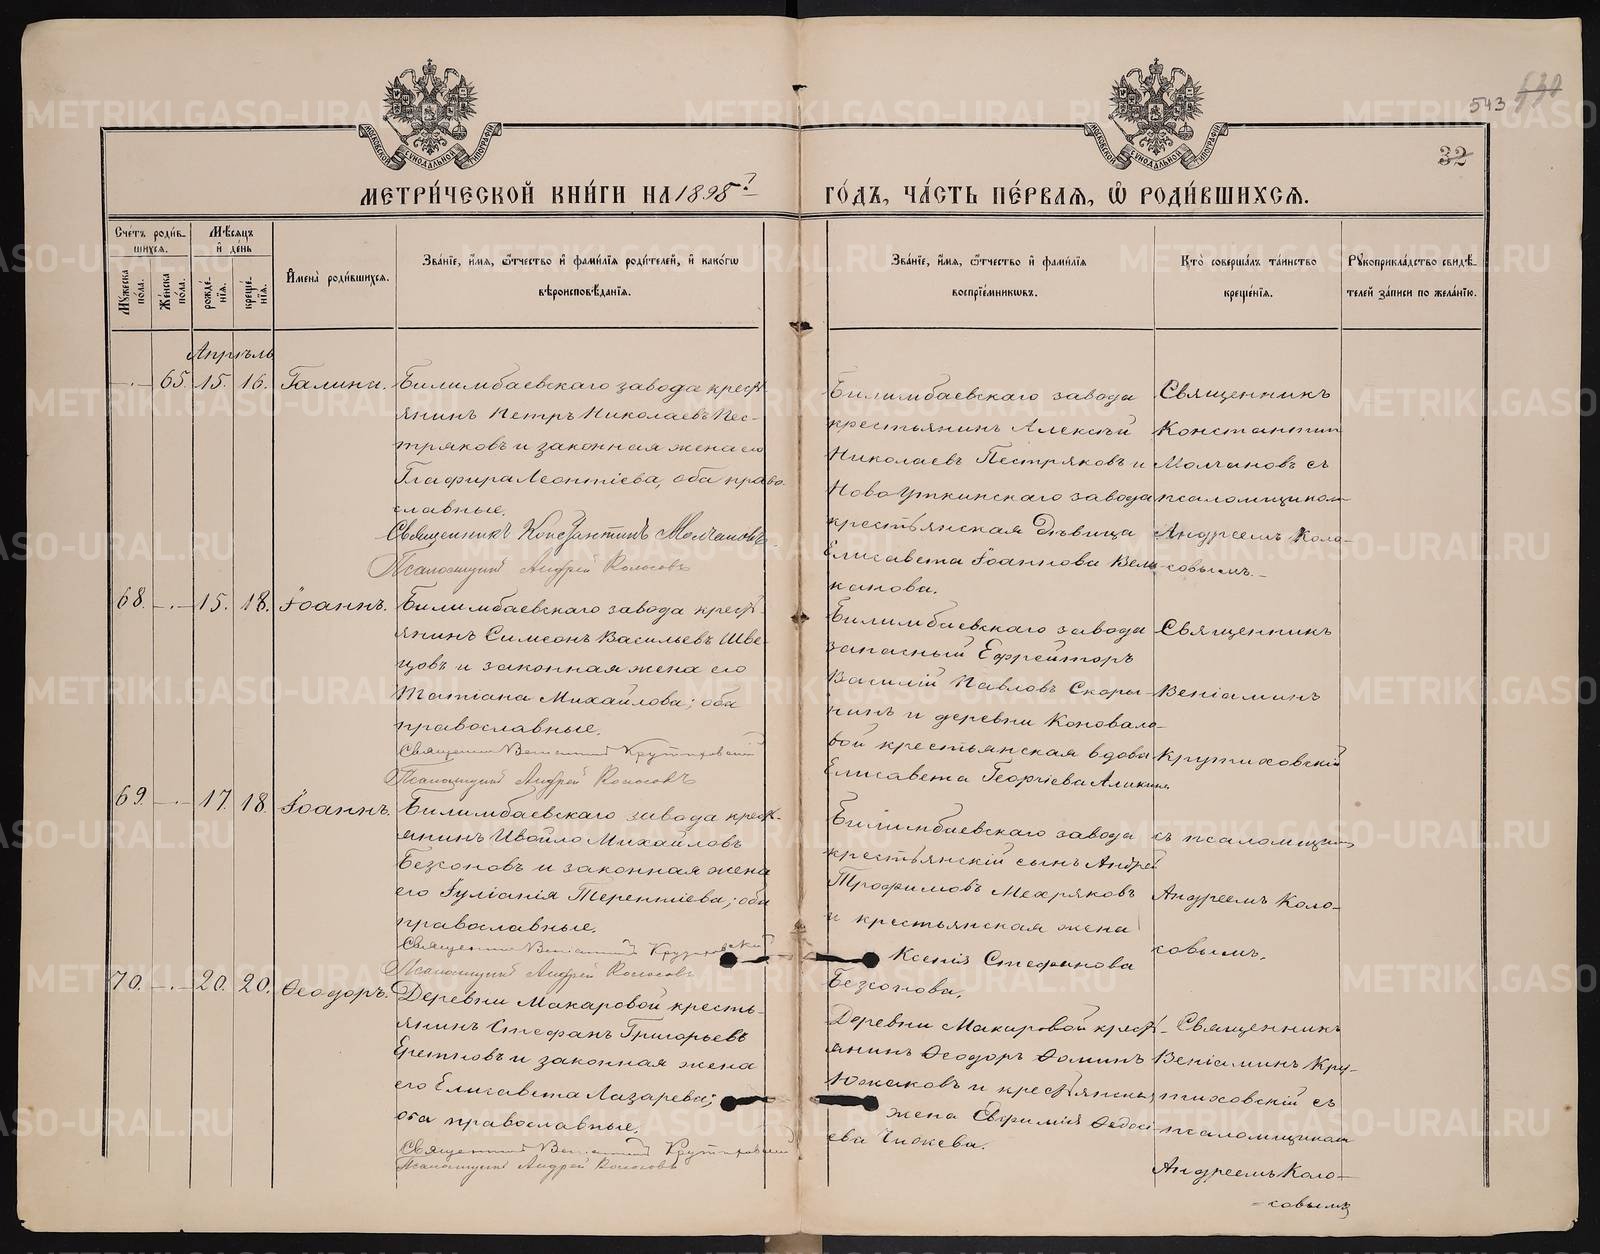 543 530
32
МОСКОВСКОЙ СИНОДАЛЬНОЙ ТИПОГРАФІИ
МОСКОВСКОЙ СИНОДАЛЬНОЙ ТИПОГРАФІИ
МЕТРИ́ЧЕСКОЙ КНИ́ГИ НА 1898
ГО́ДЪ, ЧА́СТЬ ПЕ́РВАЯ, Ѽ РОДИ́ВШИХСЯ.
Сче́тъ роди́в-
шихся.
Мꙋ́жеска по́ла.
Же́нска по́ла.
Мѣ́сяцъ
и҆ де́нь
рожде́-
нїя.
креще́-
нїя.
И҆мена̀ роди́вшихся.
Зва́нїе, и҆́мя, ѻ҆́тчество и҆ фами́лїя роди́телей, и҆ како́гѡ
вѣроисповѣ́данїя.
Зва́нїе, и҆́мя, ѻ҆́тчество и҆ фами́лїя
воспрїе́мникѡвъ.
Кто̀ соверша́лъ та́инство
креще́нїя.
Рꙋкоприкла́дство свидѣ́-
телей за́писи по жела́нїю.
Апрѣль
65. 15. 16. Галина.
Билимбаевскаго завода крест-
янинъ Петръ Николаевъ Пес-
тряковъ и законная жена его
Глафира Леонтіева, оба право-
славные.
Священникъ Константинъ Молчановъ
Псаломщикъ Андрей Колосовъ
Билимбаевскаго завода
крестьянинъ Алексѣй
Николаевъ Пестряковъ и
Ново Уткинскаго завода
крестьянская дѣвица
Елисавета Іоаннова Вели-
канова.
Священникъ
Константинъ
Молчановъ съ
псаломщикомъ
Андреемъ Коло-
совымъ.
68. 15. 18. Іоаннъ.
Билимбаевскаго завода крест-
янинъ Симеонъ Васильевъ Шве-
цовъ и законная жена его
Татіана Михайлова; оба
православные.
Священникъ Веніаминъ Крутиховскій
Псаломщикъ Андрей Колосовъ
Билимбаевскаго завода
запасный Ефрейторъ
Василій Павловъ Скоры-
нинъ и деревни Коновало-
вой крестьянская вдова
Елисавета Георгіева Аликина.
Священникъ
Веніаминъ
Крутиховскій
69. 17. 18. Іоаннъ.
Билимбаевскаго завода крест-
янинъ Ивойло Михайловъ
Безсоновъ и законная жена
его Іуліанія Терентіева; оба
православные.
Священникъ Веніаминъ Крутиховскій
Псаломщикъ Андрей Колосовъ
Билимбаевскаго завода
крестьянскій сынъ Андрей
Трофимовъ Мехряковъ
и крестьянская жена
Ксенія Стефанова
Безсонова.
съ псаломщикомъ
Андреемъ Коло-
совымъ.
70. 20. 20. Ѳеодоръ.
Деревни Макаровой кресть-
янинъ Стефанъ Григорьевъ
Еретновъ и законная жена
его Елисавета Лазарева;
оба православные.
Священникъ Веніаминъ Крутиховскій
Псаломщикъ Андрей Колосовъ
Деревни Макаровой крест-
янинъ Ѳеодоръ Ѳоминъ
Южаковъ и крестьянская
жена Евфимія Ѳедось-
ева Чижева.
Священникъ
Веніаминъ Кру-
тиховскій съ
псаломщикомъ
Андреемъ Коло-
совымъ
METRIKI.GASO-URAL.RU